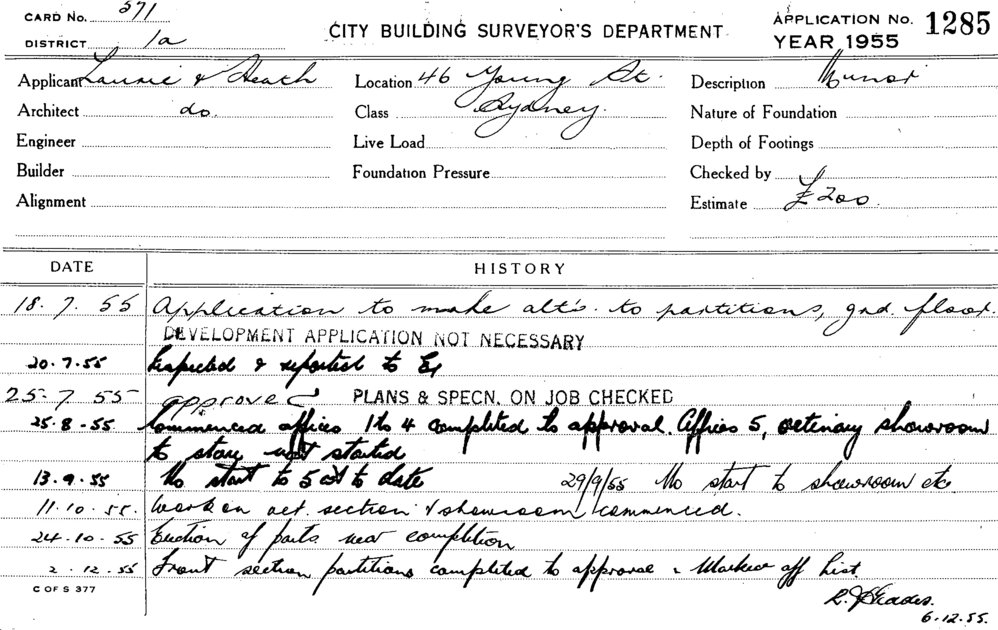 CARD No. 571
DISTRICT 1a
CITY BUILDING SURVEYOR'S DEPARTMENT
APPLICATION No. 1285
YEAR 1955
Applicant Laurie & Heath Location 46 Young St. Description Minor
Architect do. Class Sydney. Nature of Foundation
Engineer Live Load Depth of Footings
Builder Foundation Pressure Checked by
Alignment Estimate £200.
DATE HISTORY
18. 7. 55 Application to make alt's. to partitions, gnd. floor.
DEVELOPMENT APPLICATION NOT NECESSARY
20.7.55 Inspected & reported to
25.7.55 approved PLANS & SPECN. ON JOB CHECKED
25.8.55 Commenced offices 1 to 4 completed to approval. Offices 5, showroom
to store not started
13.9.55 No start to 5 to date 29/9/55 No start to showroom etc
11.10.55. Work on section & showroom commenced.
24.10.55 Erection of parts near completion
2.12.55 Front section partitions completed to approval. Marked off list.
C OF S 377
6.12.55.